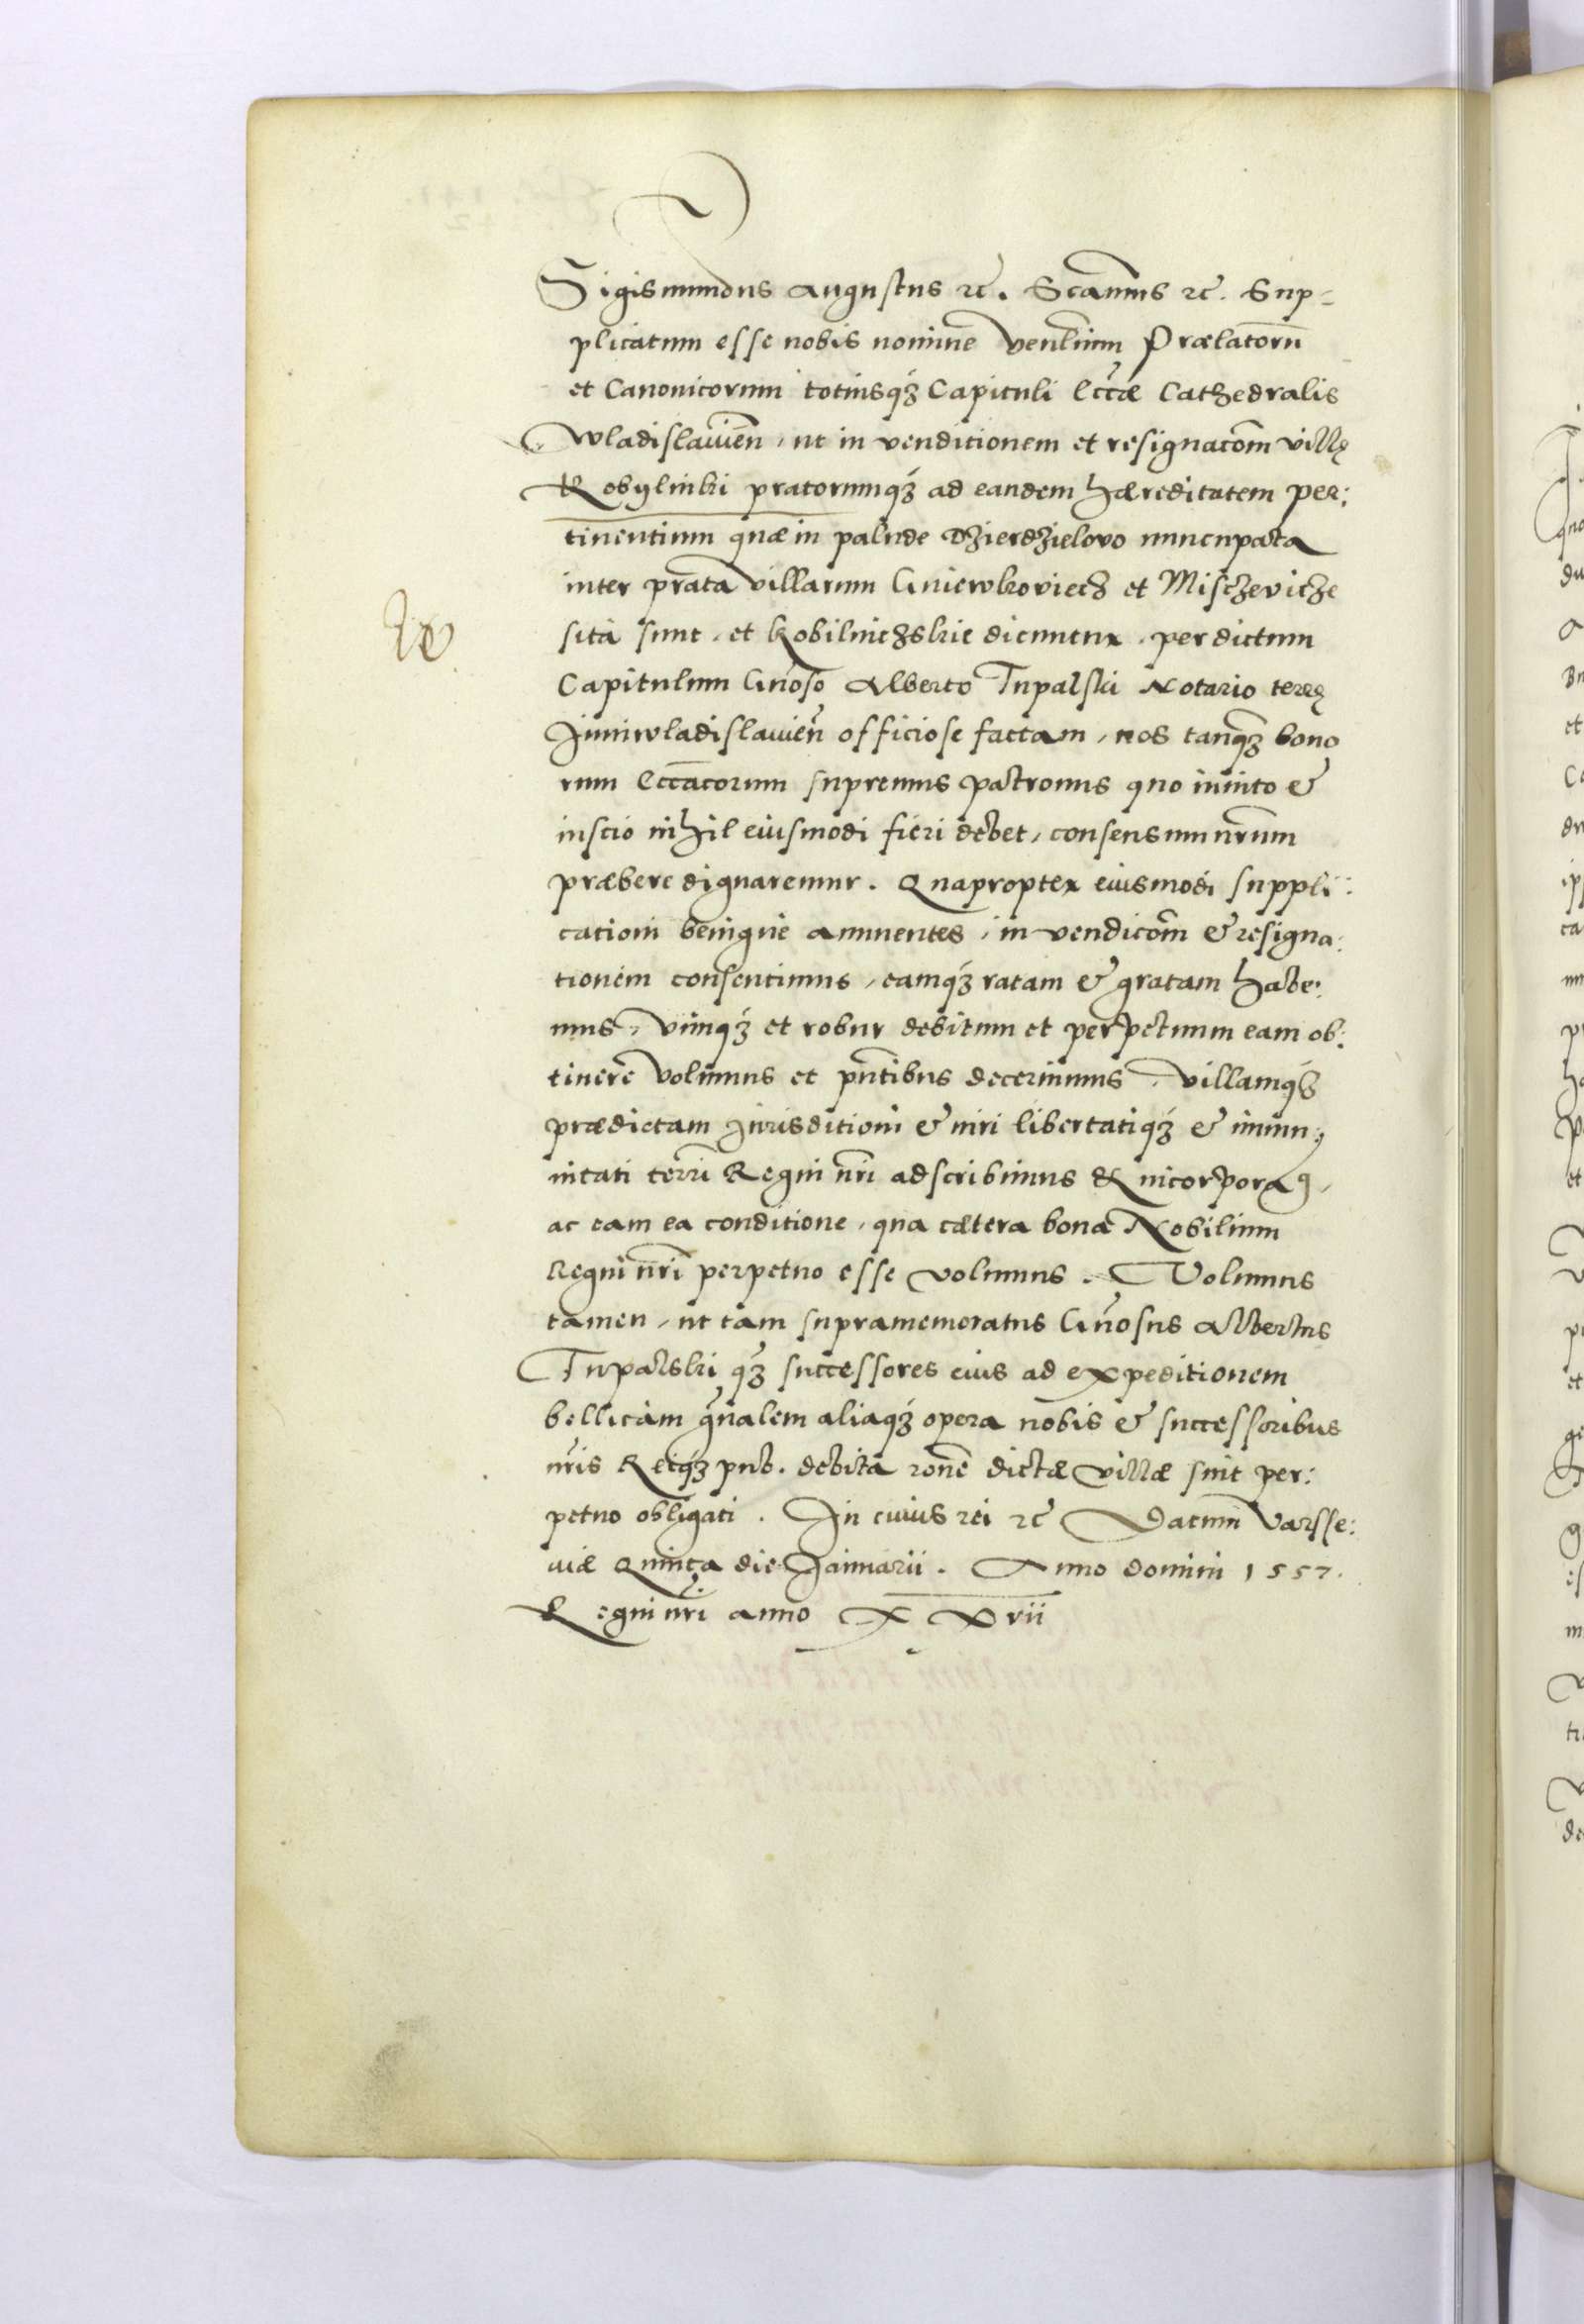 Sigismundus Augustus rc. Scamus rc. Sup-
plicatum esse nobis nomine Venlium Prælatorū
et Canonicorum totiusqꝫ Capituli Eccæ Cathedralis
Wladislauien, ut in venditionem et resignacom villę
Kobylinki pratorumqꝫ ad eandem hæreditatem per:
tinentium quæ in palude Dzierdzielovo nuncupata
inter prata villarum Gniewkoviecz et Misczevicze
sita sunt, et Kobilniczskie dicuntur, per dictum
Capitulum Gnoso Alberto Tupalski Notario terrę
Juniwladislauien officiose factam, nos tanqꝫ bono
rum Eccacorum supremus patronus quo inuito &
inscio nihil eiusmodi fieri debet, consensum nrum
præbere dignaremur. Quapropter eiusmodi suppli:
cationi benigne annuentes, in vendicom & resigna:
tionem consentimus, eamqꝫ ratam & gratam habe:
mus, vimqꝫ et robur debitum et perpetuum eam ob:
tinere volumus et pntibus decernimus, villamqꝫ
prædictam Jurisditioni & iuri libertatiqꝫ & immu:
nitati terrū Regni nri adscribimus & incorpora9,
ac eam ea conditione, qua cætera bona Nobilium
Regni nri perpetuo esse volumus. Volumus
tamen, ut tam supramemoratus Gnosus Albertus
Tupalski qꝫ successores eius ad expeditionem
bellicam gnalem aliaqꝫ opera nobis & successoribus
nris Reiqꝫ pub. debita rone dictæ villæ sint per:
petuo obligati. In cuius rei rc Datum Varsse:
uiæ Quinta die Januarii. Anno domini 1557.
Regni nri anno XXvii